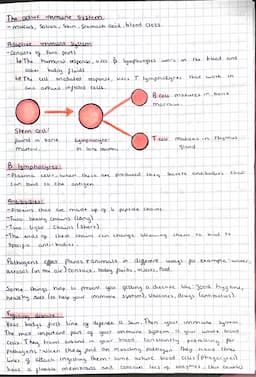 The active immune System
- mucus, Saliva, Skin, Stomach acid, blood clots.
Adaptive immune System
- Consists of two parts
The humoral response, uses B lymphocytes work in the blood and
other body fluids
The cell mediated response, uses T lymphocytes that work in
and infected cells.
B cell matures in bone
marrow.
Stem Cell
found in bone
marrow.
Lymphocyte
in bone marrow
T cell matures in thymus
gland
B lymphocytes
- Plasma cells, when these are produced they secrete antibodies that
can bind to the antigen
Antibodies
- Proteins that are made up of 4 peptide chains
- Two heavy chains (long)
- Two light chains (short)
- The ends of these chains can change allowing them to bind to
Specific antibodies.
Pathogens effect plants & animals in different ways for example water,
aerosol (in the air) contact, body fluids, insects, food.
Some things help to prevent you getting a disease like: good hygiene,
healthy diet (to help your immune system), vaccines, drugs (antibiotics)
Fighting disease
Your bodys first line of defence is Skin. Then your immune system.
The most important part of your immune system is your white blood
cells. They travel around in your blood, constantly searching for
pathogens. When they find an invading pathogen they have three
lines of attack. ingesting them: Some white blood cells (Phagocytes)
have a plasma membrane and contain lots of enzymes.